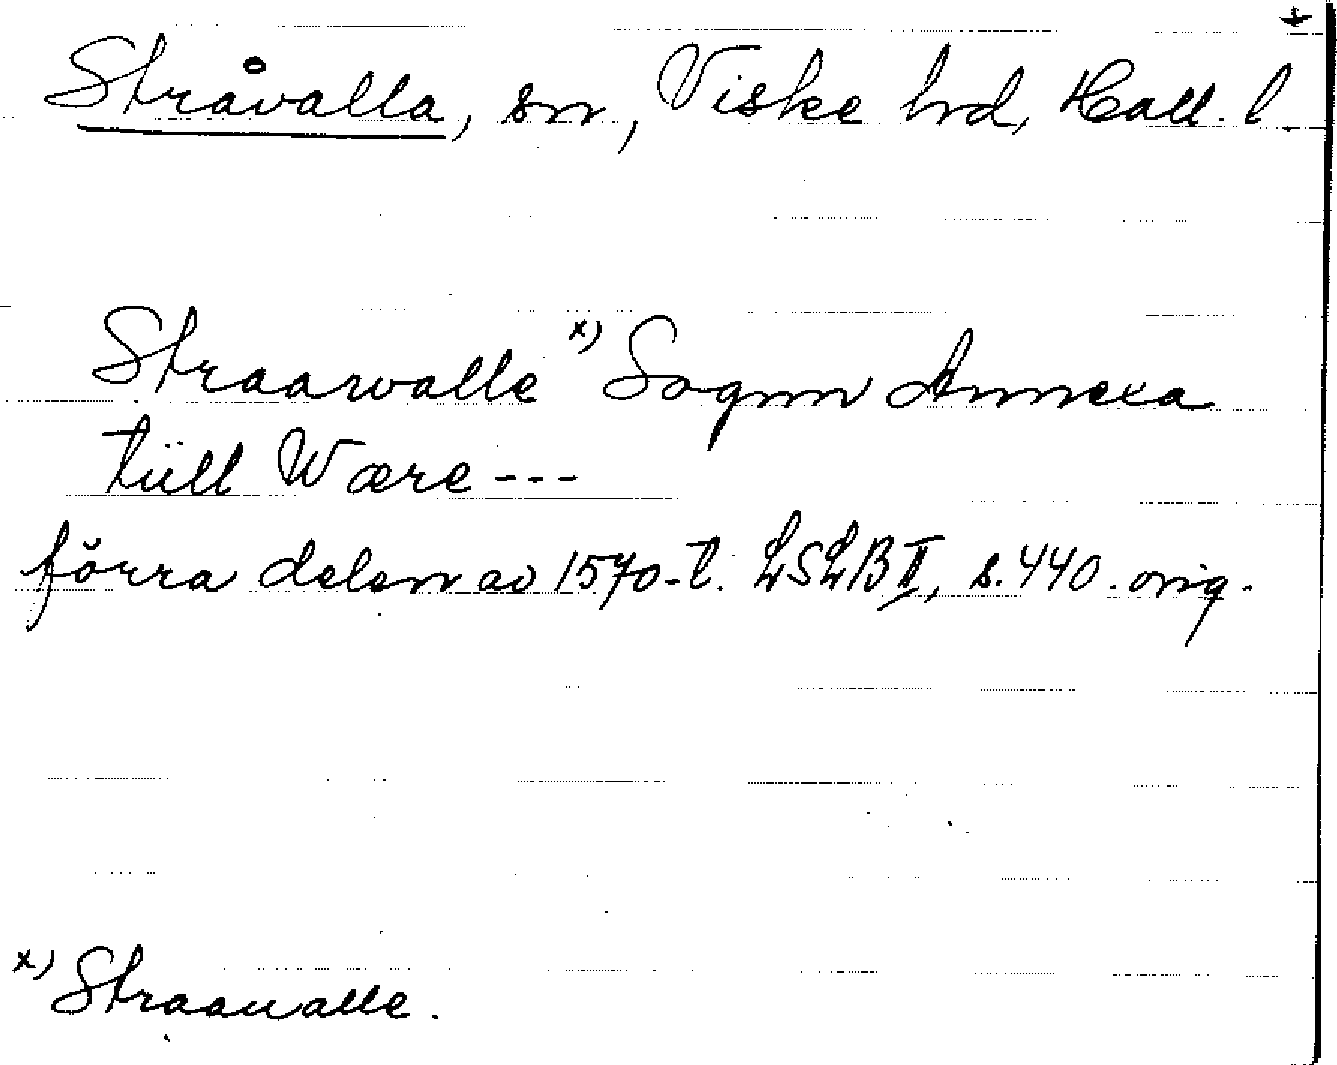 +
Stråvalla, sn, Viske hd, Hall. l.
Straawalle x) Sognn Annexa
tüll Wære ---
förra delen av 1570-t. LSLB II, s. 440. orig.
x) Straaualle.